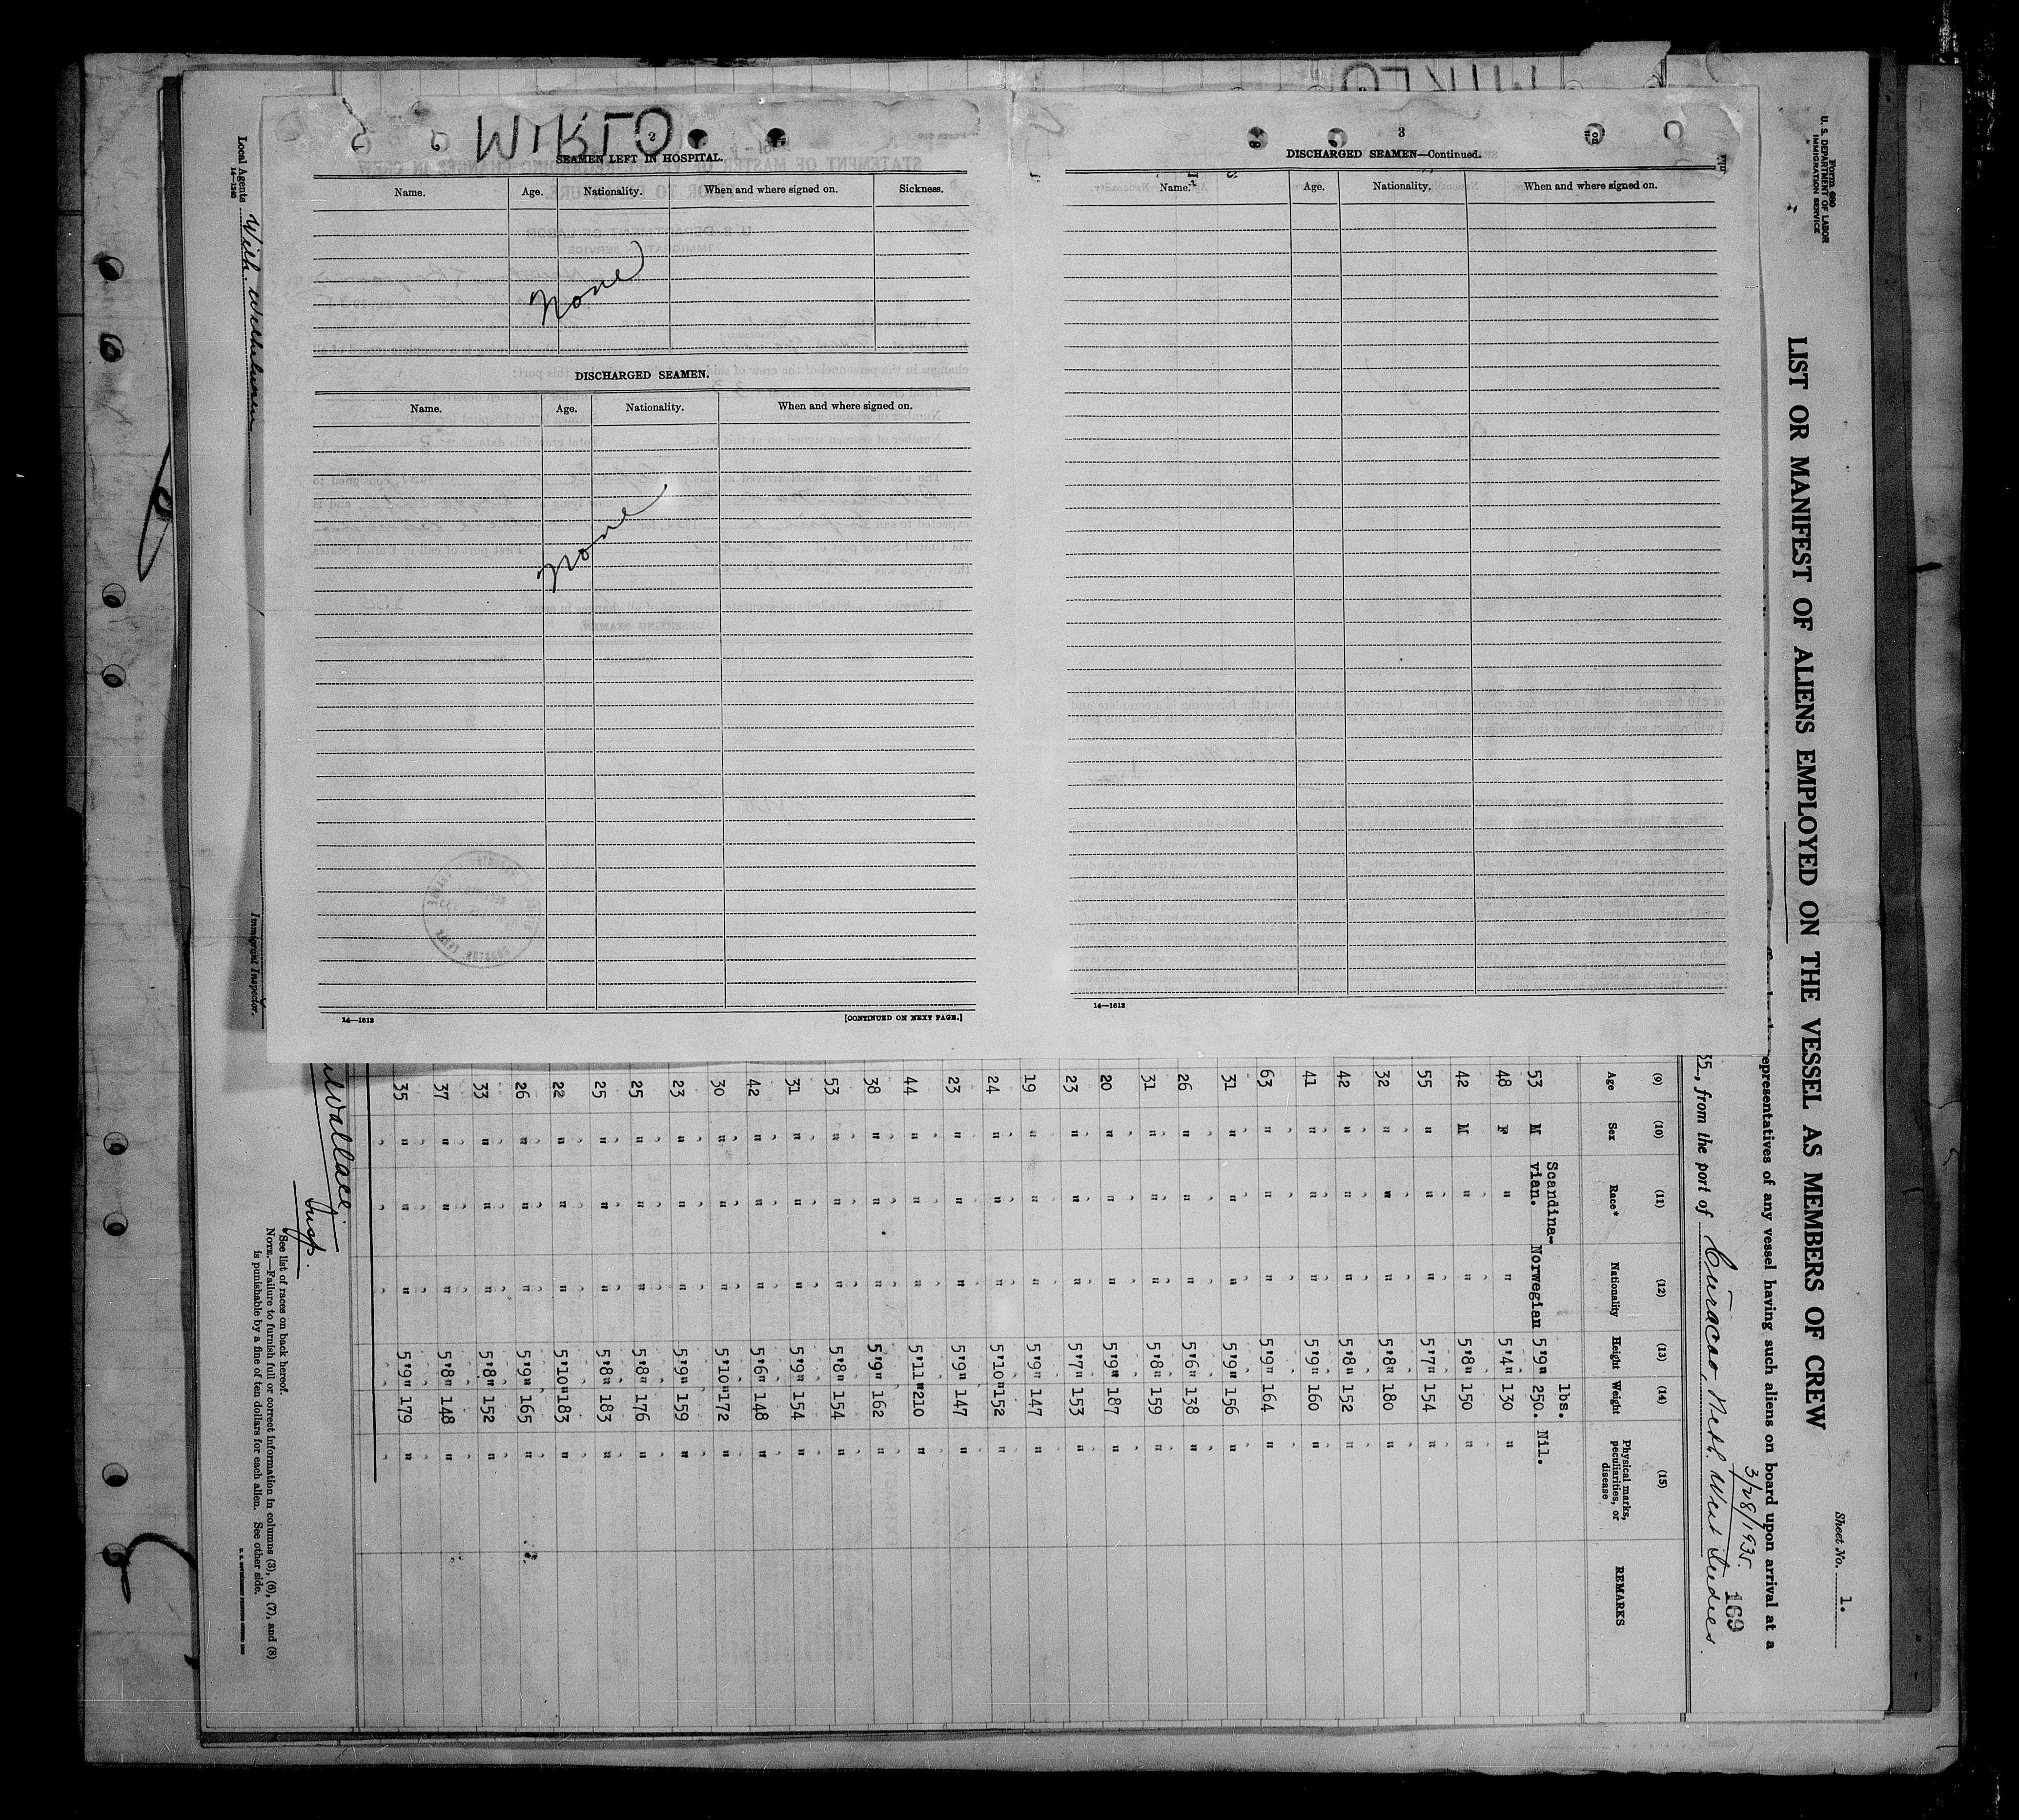 WIKLO
2
SEAMEN LEFT IN HOSPITAL.
Name. Age. Nationality. When and where signed on. Sickness.
None
DISCHARGED SEAMEN.
Name. Age. Nationality. When and where signed on.
None
14—1613
[CONTINUED ON NEXT PAGE.]
3
DISCHARGED SEAMEN—Continued.
Name. Age. Nationality. When and where signed on.
14—1613
Form 680
U. S. DEPARTMENT OF LABOR
IMMIGRATION SERVICE
Sheet No. 1.
LIST OR MANIFEST OF ALIENS EMPLOYED ON THE VESSEL AS MEMBERS OF CREW
representatives of any vessel having such aliens on board upon arrival at a
3/28/1935. 169
35, from the port of Curacao, Neth. West Indies.
(9) (10) (11) (12) (13) (14) (15)
Age Sex Race* Nationality Height Weight Physical marks, peculiarities, or disease REMARKS
lbs.
53 M Scandinavian. Norwegian 5'9" 250. Nil.
48 F " " 5'4" 130 "
42 M " " 5'8" 150 "
55 " " " 5'7" 154 "
32 " " " 5'8" 180 "
42 " " " 5'8" 152 "
41 " " " 5'9" 160 "
63 " " " 5'9" 164 "
31 " " " 5'9" 156 "
26 " " " 5'6" 138 "
31 " " " 5'8" 159 "
20 " " " 5'9" 187 "
23 " " " 5'7" 153 "
19 " " " 5'9" 147 "
24 " " " 5'10" 152 "
23 " " " 5'9" 147 "
44 " " " 5'11" 210 "
38 " " " 5'9" 162 "
53 " " " 5'8" 154 "
31 " " " 5'9" 154 "
42 " " " 5'6" 148 "
30 " " " 5'10" 172 "
23 " " " 5'9" 159 "
25 " " " 5'8" 176 "
25 " " " 5'8" 183 "
22 " " " 5'10" 183 "
26 " " " 5'9" 165 "
33 " " " 5'8" 152 "
37 " " " 5'8" 148 "
35 " " " 5'9" 179 "
Wallace
Insp.
*See list of races on back hereof.
NOTE.—Failure to furnish full or correct information in columns (3), (6), (7), and (8)
is punishable by a fine of ten dollars for each alien. See other side.
Local Agents Wilh. Wilhelmsen
14—1240
Immigrant Inspector.